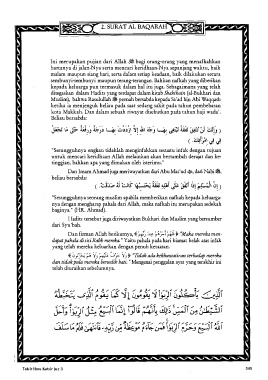 2. SURAT AL BAQARAH
Ini merupakan pujian dari Allah ﷻ bagi orang-orang yang menafkahkan
hartanya di jalan-Nya serta mencari keridhaan-Nya sepanjang waktu, baik
malam maupun siang hari, serta dalam setiap keadaan, baik dilakukan secara
sembunyi-sembunyi maupun terang-terangan. Bahkan nafkah yang diberikan
kepada keluarga pun termasuk dalam hal itu juga. Sebagaimana yang telah
ditegaskan dalam Hadits yang terdapat dalam kitab Shahihain (al-Bukhari dan
Muslim), bahwa Rasulullah ﷺ pernah bersabda kepada Sa'ad bin Abi Waqqash
ketika ia menjenguk beliau pada saat sedang sakit pada tahun pembebasan
kota Makkah. Dan dalam sebuah riwayat disebutkan pada tahun haji wada'.
Beliau bersabda:
"Sesungguhnya engkau tidaklah menginfakkan sesuatu infak dengan tujuan
untuk mencari keridhaan Allah melainkan akan bertambah derajat dan ke-
tinggian, bahkan apa yang dimakan oleh isterimu."
Dan Imam Ahmad juga meriwayatkan dari Abu Mas'ud ؓ, dari Nabi ﷺ,
beliau bersabda:
"Sesungguhnya seorang muslim apabila memberikan nafkah kepada keluarga-
nya dengan mengharap pahala dari Allah, maka nafkah itu merupakan sedekah
baginya." (HR. Ahmad).
Hadits tersebut juga diriwayatkan Bukhari dan Muslim yang bersumber
dari Syu'bah.
Dan firman Allah berikutnya, ﴾ فَلَهُمْ أَجْرُهُمْ عِندَ رَبِّهِمْ ﴿ "Maka mereka men-
dapat pahala di sisi Rabb mereka." Yaitu pahala pada hari kiamat kelak atas infak
yang telah mereka keluarkan dengan penuh ketaatan.
﴾ وَلَا خَوْفٌ عَلَيْهِمْ وَلَا هُمْ يَحْزَنُونَ ﴿ "Tidak ada kekhawatiran terhadap mereka
dan tidak pula mereka bersedih hati." Mengenai penggalan ayat yang terakhir ini
telah diuraikan sebelumnya.
الَّذِينَ يَأْكُلُونَ الرِّبَوٰا لَا يَقُومُونَ إِلَّا كَمَا يَقُومُ الَّذِي يَتَخَبَّطُهُ
الشَّيْطَانُ مِنَ الْمَسِّ ذَٰلِكَ بِأَنَّهُمْ قَالُوا إِنَّمَا الْبَيْعُ مِثْلُ الرِّبَوٰا وَأَحَلَّ
اللَّهُ الْبَيْعَ وَحَرَّمَ الرِّبَوٰا فَمَن جَاءَهُ مَوْعِظَةٌ مِّن رَّبِّهِ فَانتَهَىٰ فَلَهُ مَا سَلَفَ
Tafsir Ibnu Katsir Juz 3